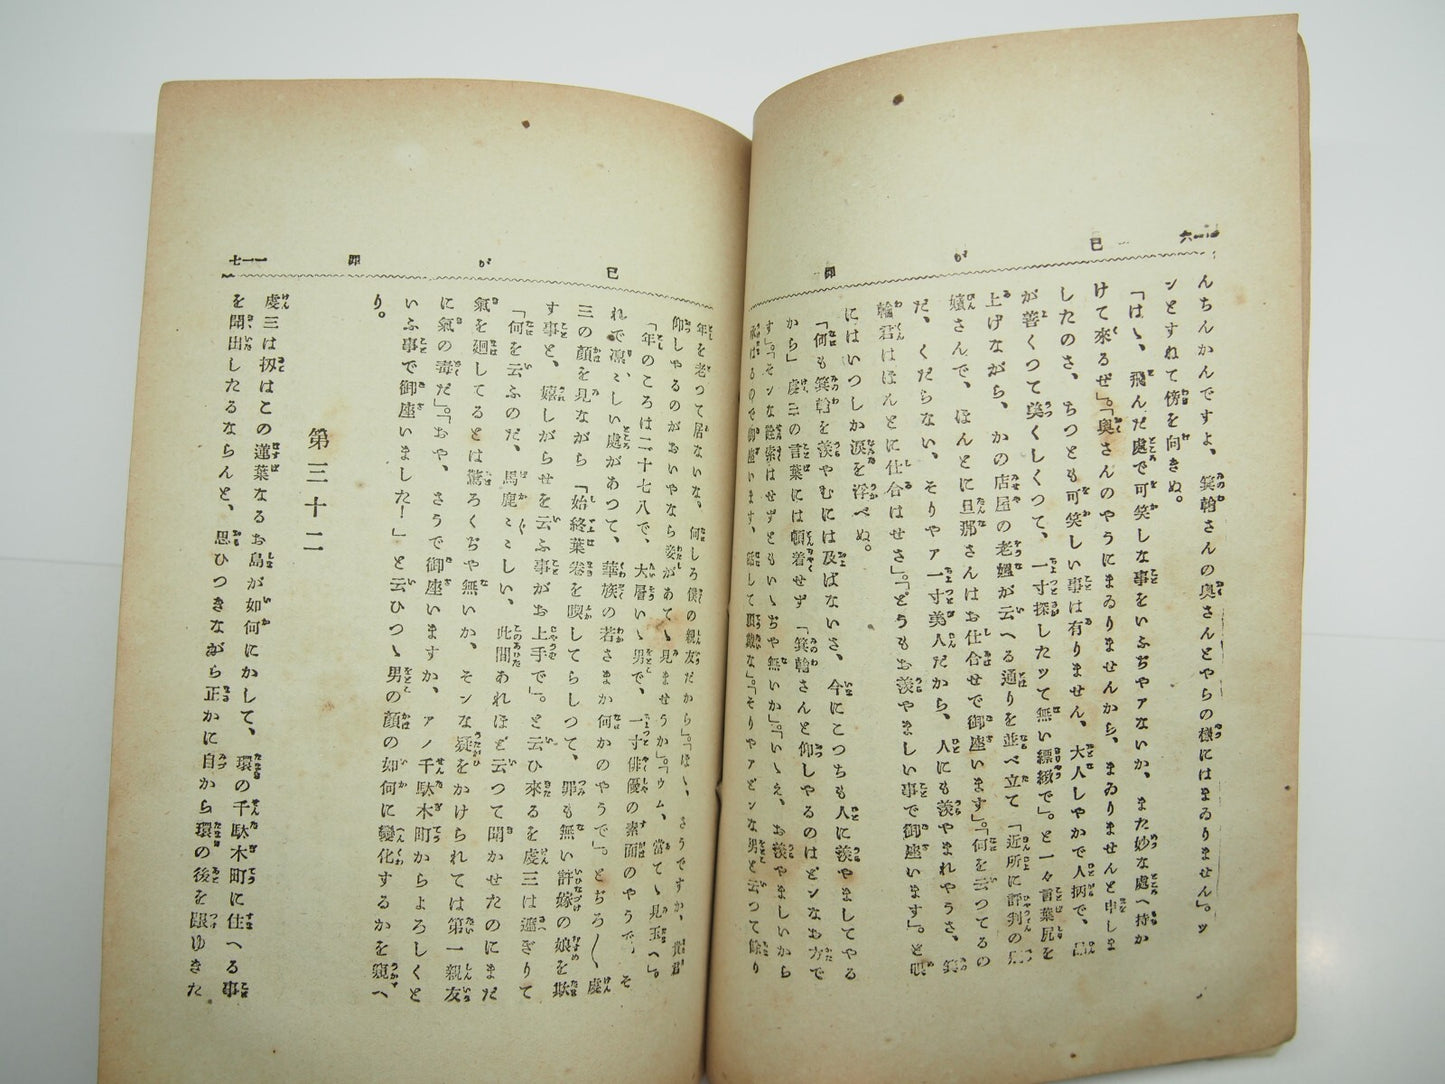 六一一 己 が 罪
んちんかんですよ、箕輪さんの奥さんとやらの樣にはまゐりません』。ツ
ンとすねて傍を向きぬ。
「はゝ、飛んだ處で可笑しな事をいふぢやァないか、また妙な處へ持か
けて來るぜ』。「奥さんのやうにまゐりませんから、まゐりませんと申しま
したのさ、ちつとも可笑しい事は有りません、大人しやかで人柄で、品
が善くつて美くしくつて、一寸探したツて無い縹緻で』。と一々言葉尻を
上げながら、かの店屋の老媼が云へる通りを並べ立て「近所に評判の
孃さんで、ほんとに旦那さんはお仕合せで御座います』。「何を云つてるの
だ、くだらない、そりやァ一寸美人だから、人にも羨やまれやうさ、箕
輪君はほんとに仕合はせさ』。「どうもお羨やましい事で御座います』。と
にはいつしか涙を浮べぬ。
「何も箕輪を羨やむには及ばないさ、今にこつちも人に羨やましてやる
から」虔三の言葉には頓着せず「箕輪さんと仰しやるのはどンなお方で
す』。「そンな詮索はせずともいゝぢや無いか』。「いゝえ、お羨やましいから
承はるので御座います、話して頂戴な』。「そりやァどンな男と云つて餘り
七一一 己 が 罪
年を老つて居ないな、何しろ僕の親友だから』。「ほゝ、さうですか、貴君
仰しやるのがおいやなら妾があてゝ見ませうか』。「ウム、當てゝ見玉へ』。
「年のころは二十七八で、大層いゝ男で、一寸俳優の素面のやうで、そ
れで凛〻しい處があつて、華族の若さまか何かのやうで』。とぢろ〳〵虔
三の顔を見ながら「始終葉卷を喫してらしつて、罪も無い許嫁の娘を欺
す事と、嬉しがらせを云ふ事がお上手で』。と云ひ來るを虔三は遮ぎりて
「何を云ふのだ、馬鹿〻〻しい、此間あれほど云つて聞かせたのにまだ
氣を廻してるとは驚ろくぢや無いか、そンな疑をかけられては第一親友
に氣の毒だ』。「おや、さうで御座いますか、アノ千駄木町からよろしくと
いふ事で御座いました！」と云ひつゝ男の顔の如何に變化するかを窺へ
り。
第三十二
虔三は扨はこの蓮葉なるお島が如何にかして、環の千駄木町に住へる事
を聞出したるならんと、思ひつきながら正かに自から環の後を跟ゆきた